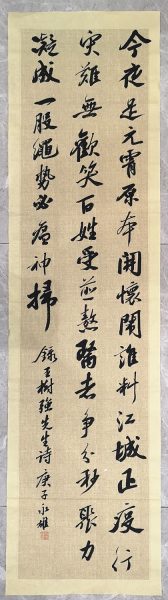 今夜是元宵原本開懷鬧誰料江城正疫行
灾難無歡笑百姓受煎熬醫者争分秒聚力
凝成一股繩勢必瘟神掃
錄王樹強先生詩庚子永雄